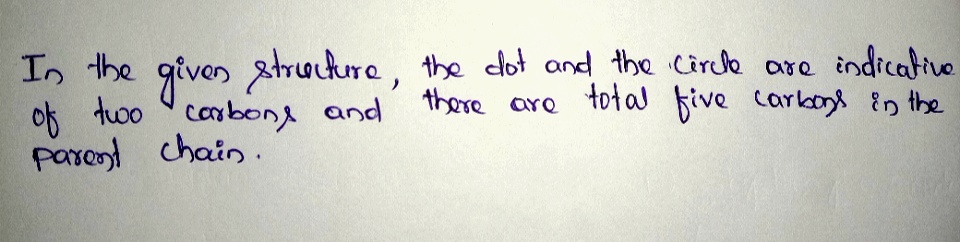 In the given structure, the dot and the circle are indicative
of two carbons and there are total five carbons in the
parent chain.